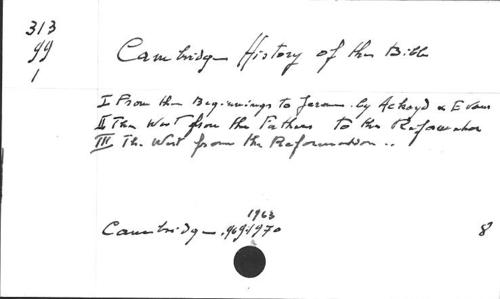 313
99
1
Cambridge History of the Bible
I From the Beginnings to Jerome. by Ackroyd & Evans
II The West from the Fathers to the Reformation
III The West from the Reformation ..
1963
Cambridge 1970
8